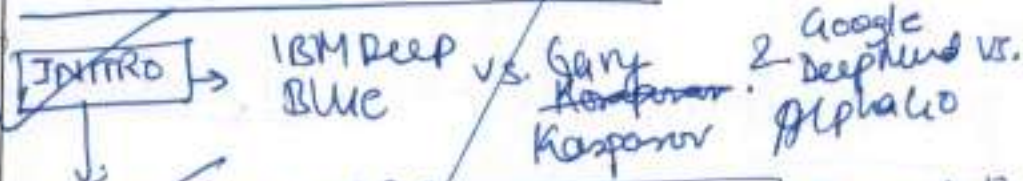 INTRO → IBM Deep Blue vs. Gary Kasparov 2 Google DeepMind vs. AlphaGo